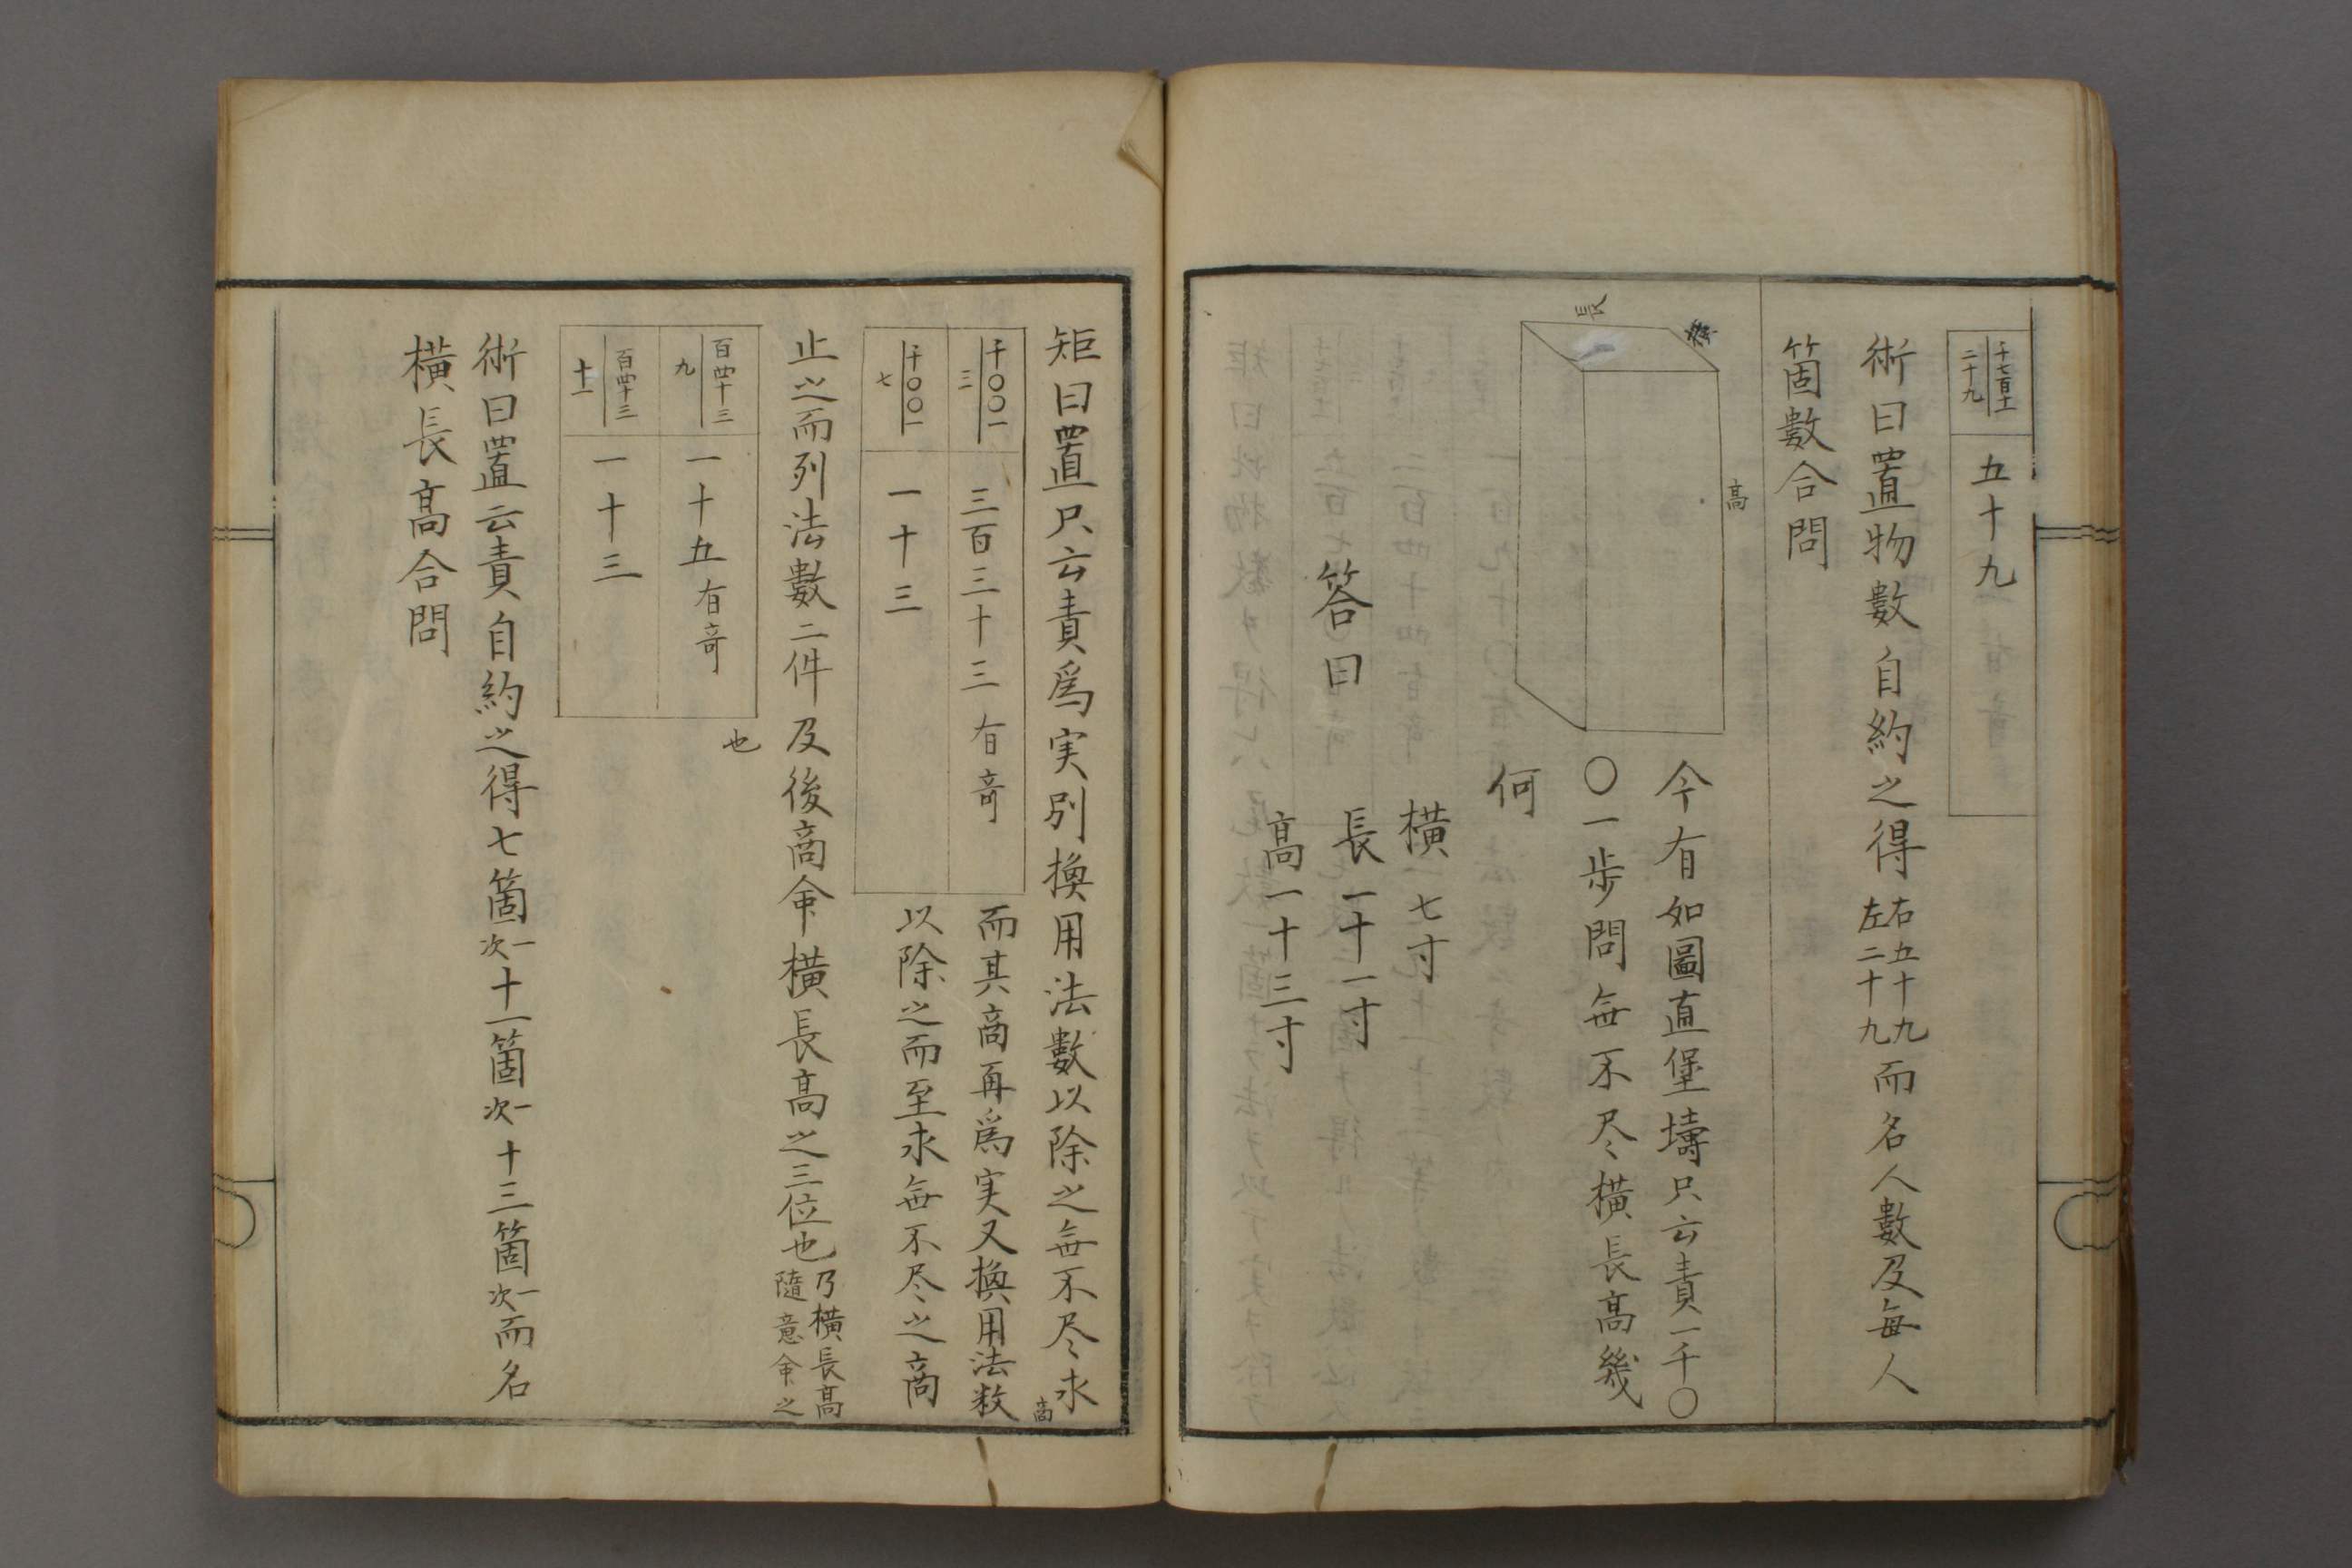 千七百十一
二十九
五十九
術曰置物數自約之得右五十九左二十九而名人數及每人
箇數合問
長
横
高
今有如圖直堡壔只云責一千〇
〇一歩問無不尽横長高幾
何
答曰
横七寸
長一十一寸
高一十三寸
矩曰置只云責爲実別換用法數以除之無不尽求
商
千〇〇一
三
三百三十三有奇
而其商再爲実又換用法数
千〇〇一
七
一十三
以除之而至求無不尽之商
止之而列法數二件及後商命横長高之三位也乃横長高隨意命之
也
百四十三
九
一十五有奇
百四十三
十一
一十三
術曰置云責自約之得七箇一次十一箇一次十三箇一次而名
横長高合問